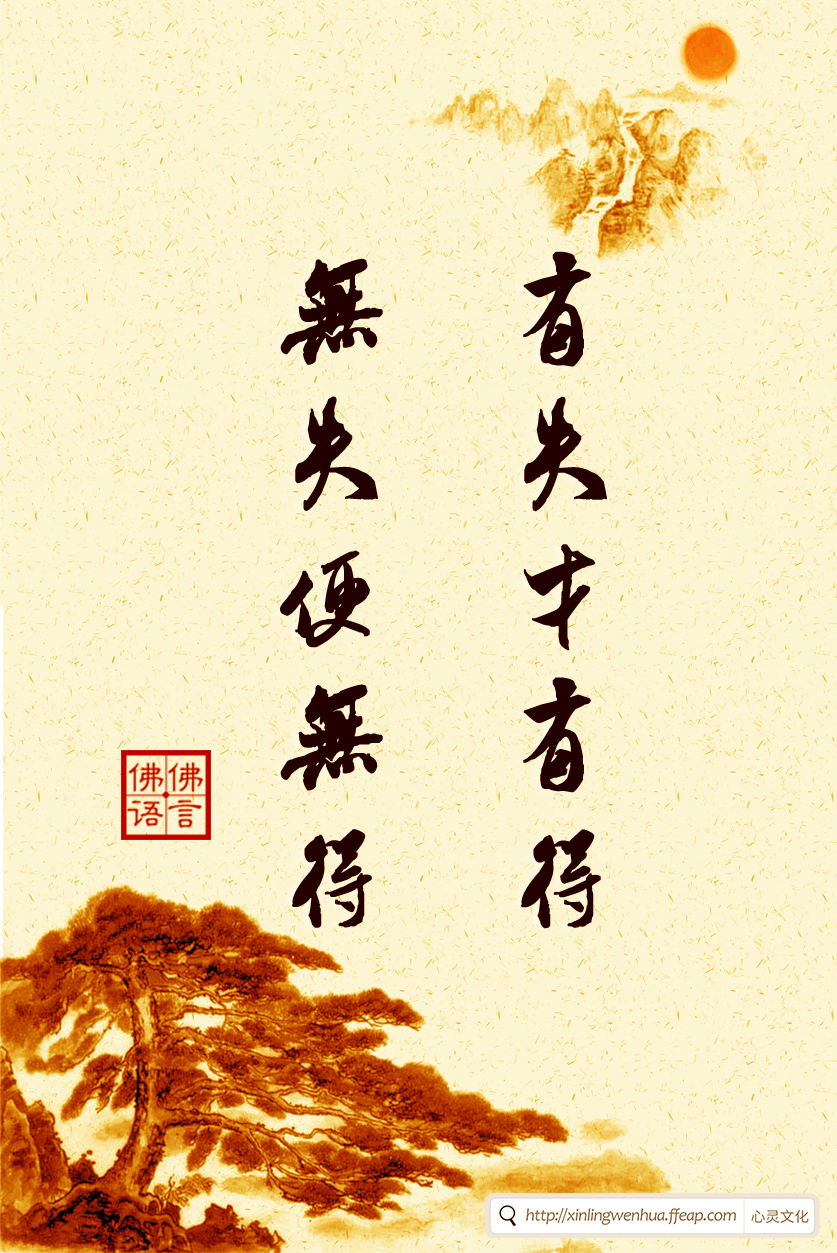 有失才有得
無失便無得
佛言
佛语
http://xinlingwenhua.ffeap.com 心灵文化